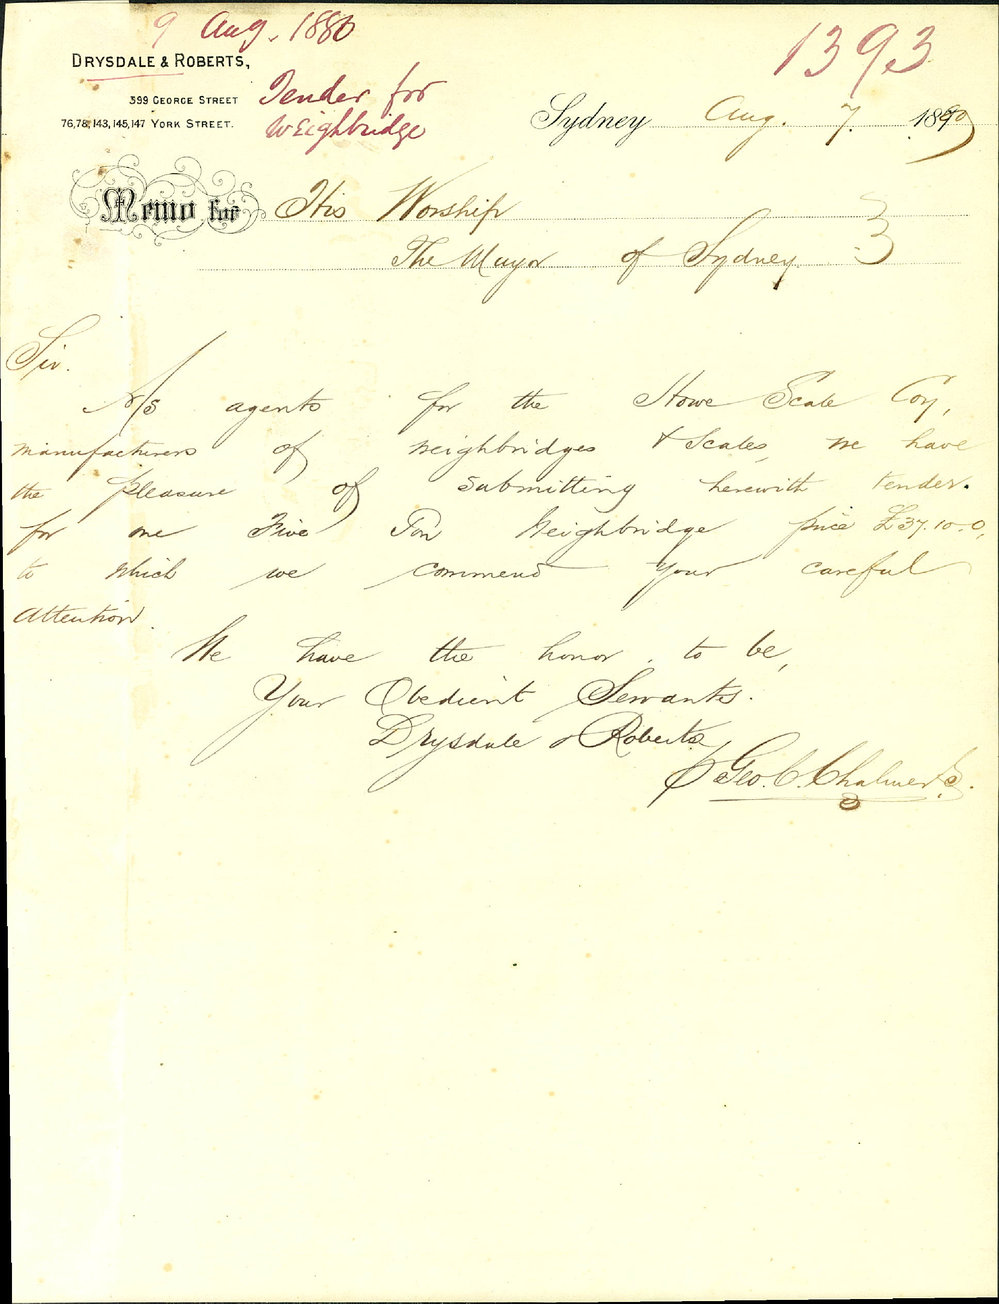 9 Aug. 1880
1393
DRYSDALE & ROBERTS,
399 GEORGE STREET
76,78,143,145,147 YORK STREET.
Tender for
Weighbridge
Sydney Aug. 7. 1880
Memo for His Worship
The Mayor of Sydney
Sir.
As agents for the Howe Scale Coy,
manufacturers of weighbridges & Scales, we have
the pleasure of submitting herewith tender.
for one Five Ton Weighbridge price £37.10.0,
to which we commend your careful
attention.
We have the honor to be,
Your Obedient Servants.
Drysdale & Roberts,
p Geo. C. Chalmers.